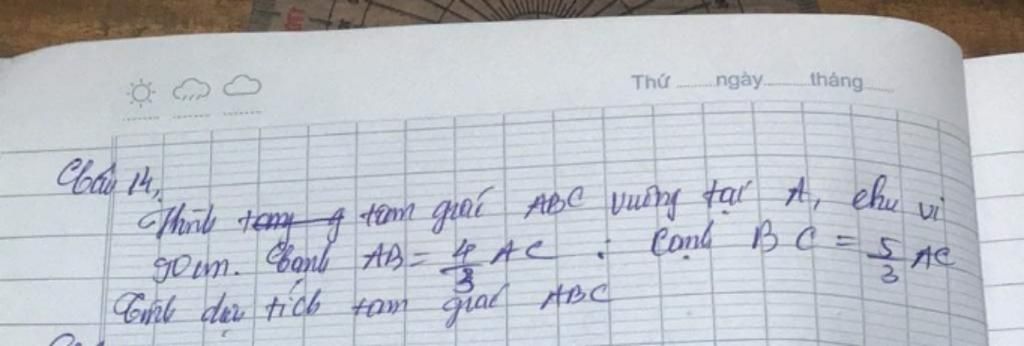 Thứ ........ngày..........tháng.......
Câu 14.
Hình tam g tam giác ABC vuông tại A, chu vi
90cm. Cạnh AB = 4/3 AC . Cạnh BC = 5/3 AC
Tính diện tích tam giác ABC